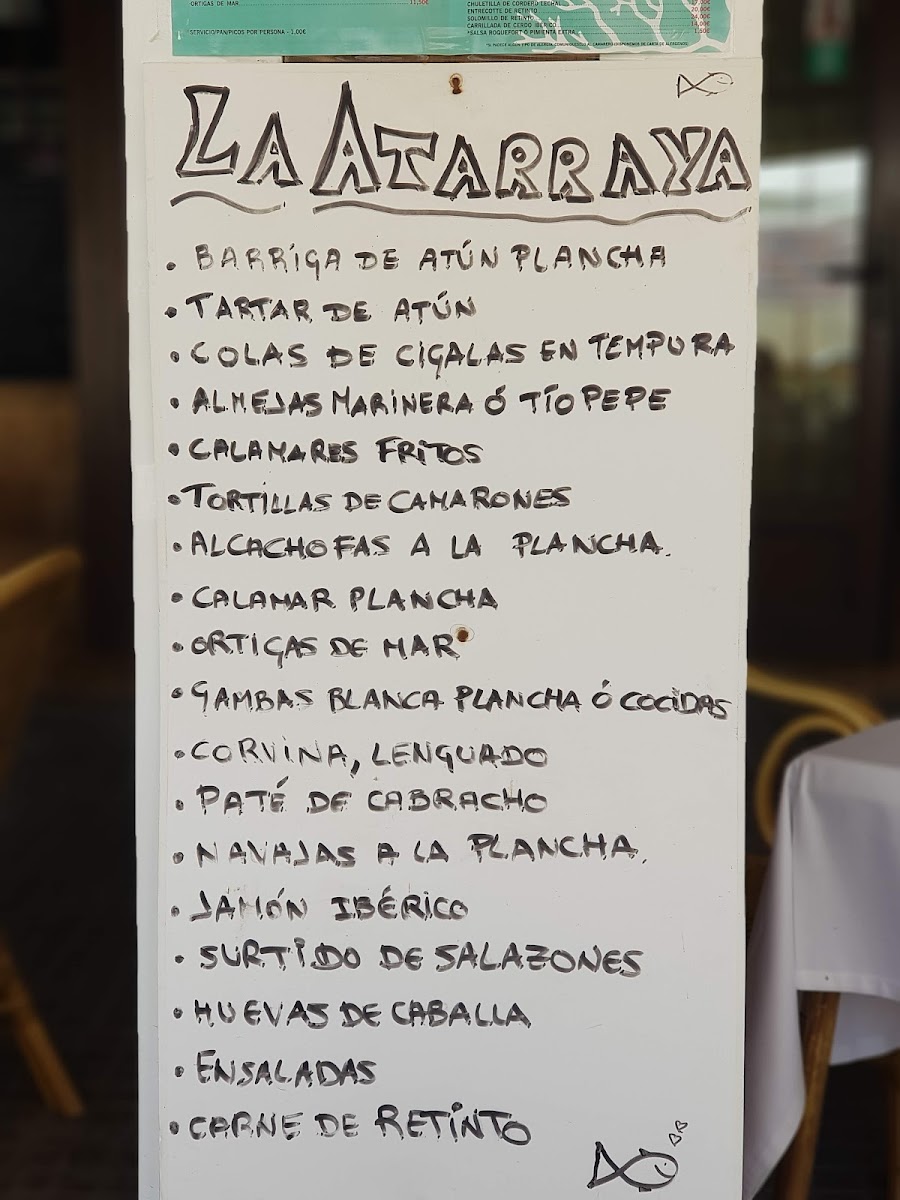 ORTIGAS DE MAR 11,50€
SERVICIO/PAN/PICOS POR PERSONA - 1,00€
CHULETILLA DE CORDERO LECHAL
ENTRECOTTE DE RETINTO 20,60€
SOLOMILLO DE RETINTO 24,00€
CARRILLADA DE CERDO IBERICO
*SALSA ROQUEFORT O PIMIENTA EXTRA 1,50€
LA ATARRAYA
• BARRIGA DE ATÚN PLANCHA
• TARTAR DE ATÚN
• COLAS DE CIGALAS EN TEMPURA
• ALMEJAS MARINERA Ó TÍO PEPE
• CALAMARES FRITOS
• TORTILLAS DE CAMARONES
• ALCACHOFAS A LA PLANCHA.
• CALAMAR PLANCHA
• ORTIGAS DE MAR
• GAMBAS BLANCA PLANCHA Ó COCIDAS
• CORVINA, LENGUADO
• PATÉ DE CABRACHO
• NAVAJAS A LA PLANCHA.
• JAMÓN IBÉRICO
• SURTIDO DE SALAZONES
• HUEVAS DE CABALLA
• ENSALADAS
• CARNE DE RETINTO